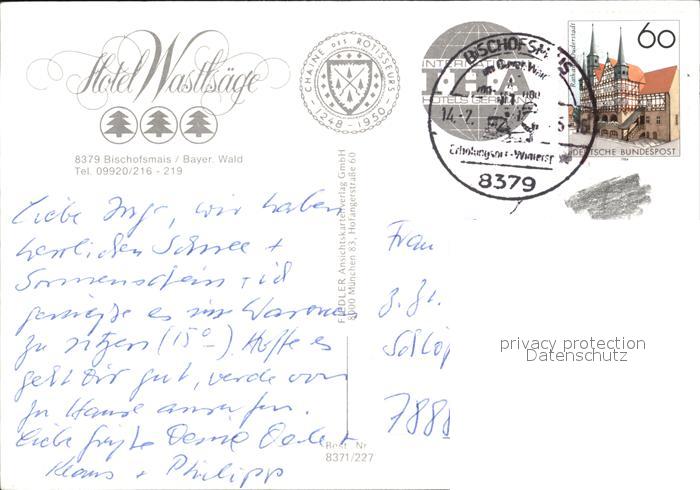 Hotel Wastlsäge
8379 Bischofsmais / Bayer. Wald
Tel. 09920/216 - 219
CHAÎNE DES ROTISSEURS
1248 - 1950
INTERNATIONAL
IHA
HOTELS GERMANY
BISCHOFSMAIS
14.-7.
Erholungsort - Wintersp
8379
60
DEUTSCHE BUNDESPOST
Liebe Inge, wir haben
herrlichen Schnee +
Sonnenschein + ich
genieße es im Warmen
zu sitzen (15°). Hoffe es
geht Dir gut, werde von
zu Hause anrufen.
Liebe Grüße Deine
Klaus + Philipp
FIEDLER Ansichtskartenverlag GmbH
8000 München 83, Hofangerstraße 60
Best. Nr.
8371/227
Frau
z. Zt.
Schlo
7888
privacy protection
Datenschutz